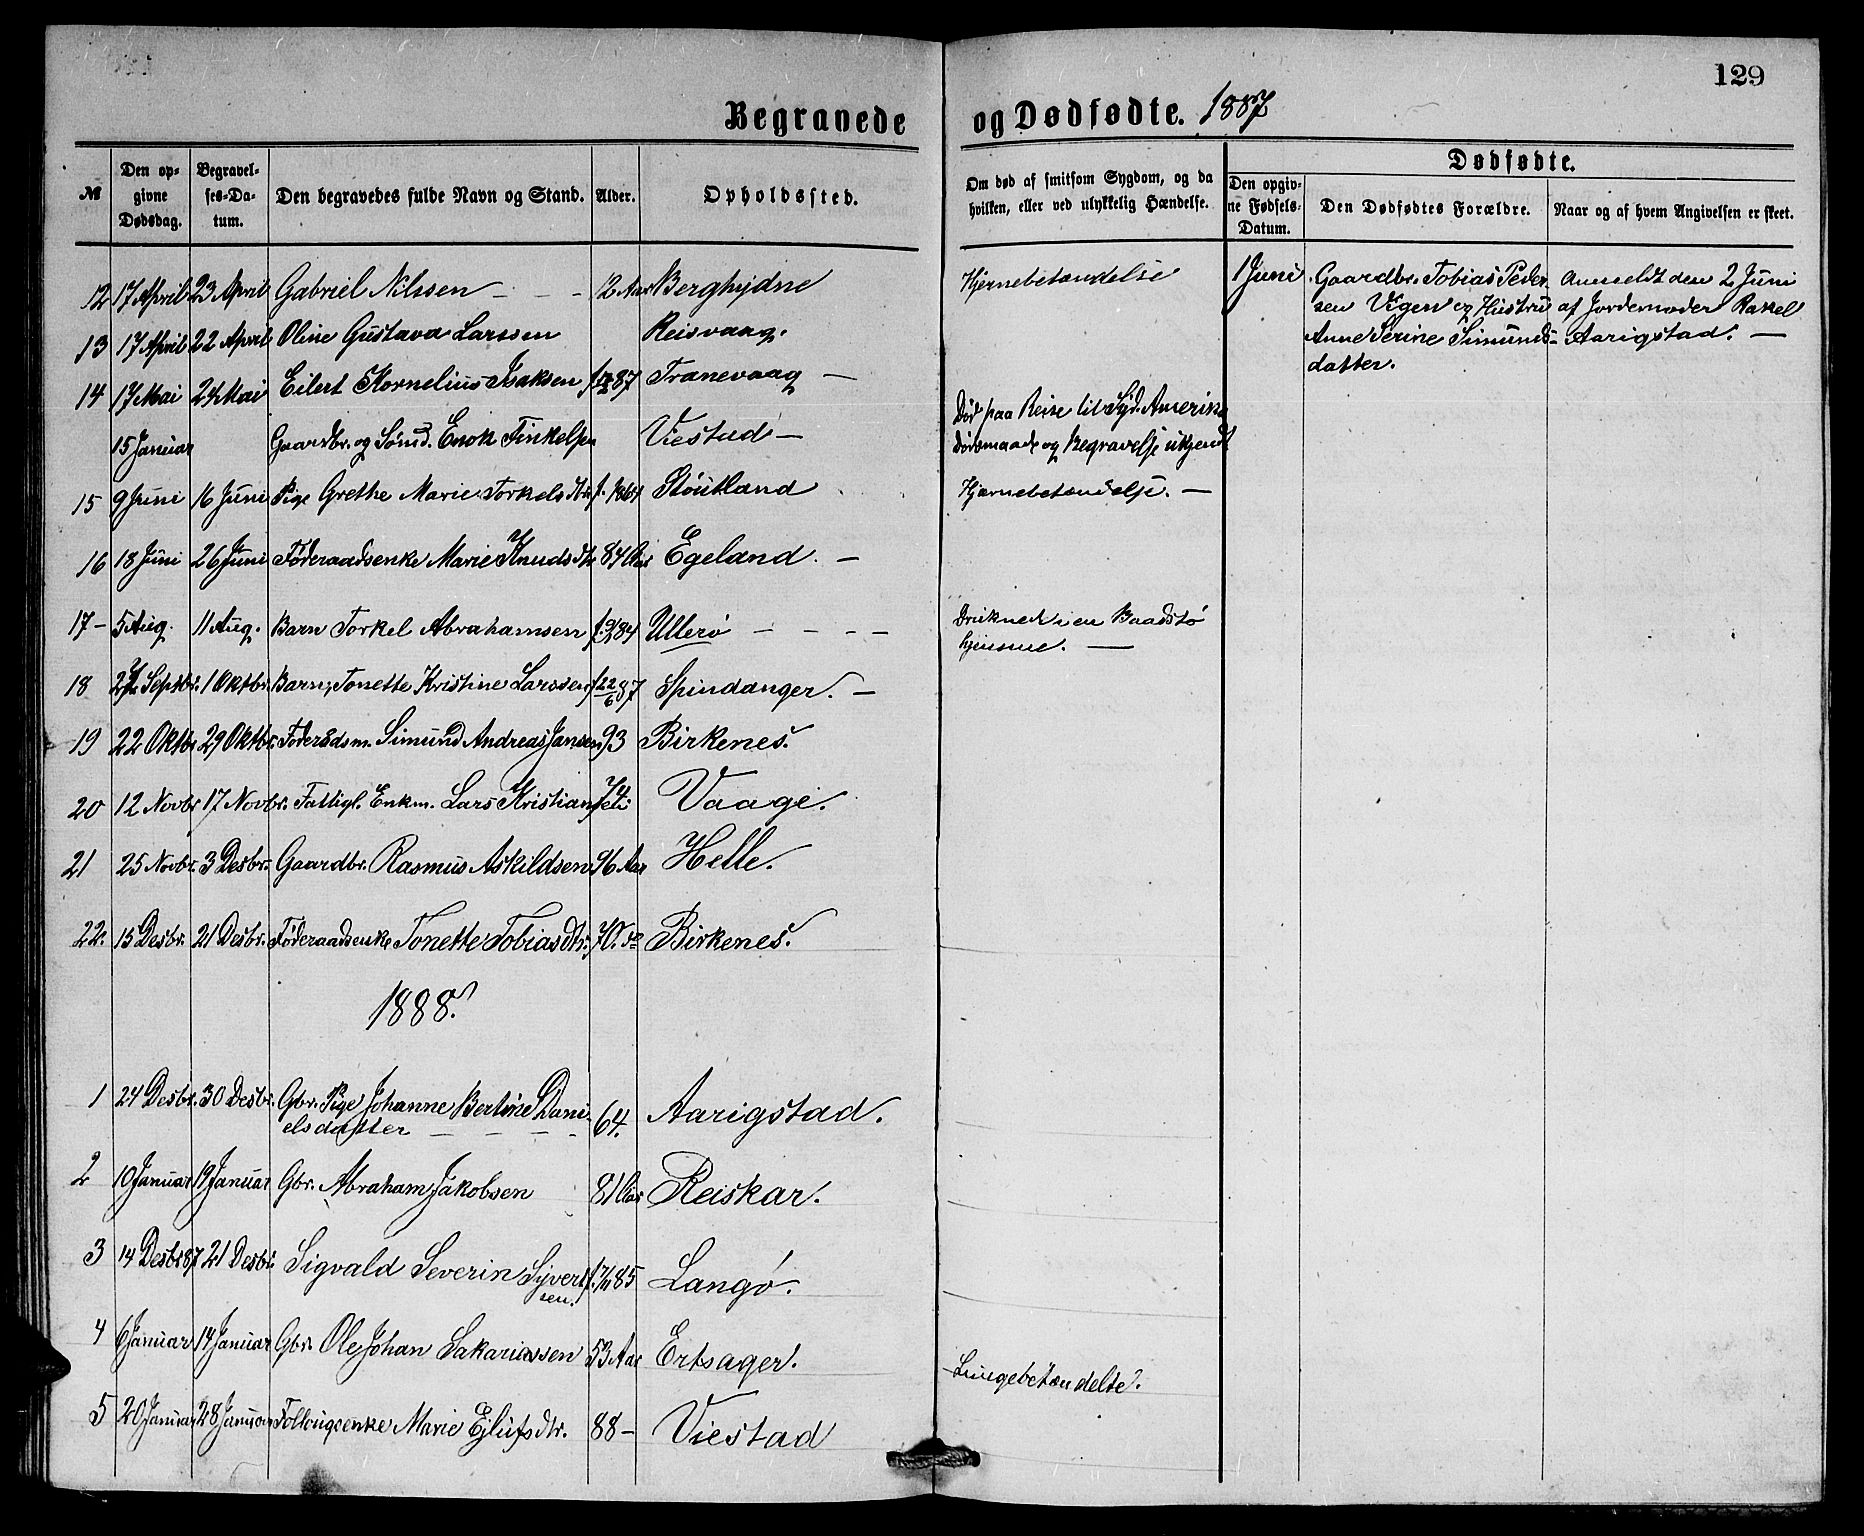 129
Begravede og Dødfødte. 1887
№ Den opgivne Dødsdag. Begravelses-Datum. Den begravedes fulde Navn og Stand. Alder. Opholdssted. Om død af smitsom Sygdom, og da hvilken, eller ved ulykkelig Hændelse. Den opgivne Fødsels-Datum. Dødfødte. Den Dødfødtes Forældre. Naar og af hvem Angivelsen er skeet.
12 17 April 23 April Gabriel Nilssen - - - 12 Aar Berghejdne Hjernebetændelse 1 Juni Gaardbr. Tobias Peder- Anmeldt den 2 Juni
sen Vigen og Hustru af Jordemoder Rakel
13 17 April 22 April Oline Gustava Larssen Reisvaag.
Anne Serine Simunds- Aarigstad. —
datter.
14 17 Mai 24 Mai Eilert Kornelius Isaksen 87 Tranevaag —
15 Januar Gaardbr. og Sømd. Enok Tinkelsen Viestad — Død paa Reise til Syd. Amerika
Dødsmaade og Begravelse ukjendt
15 9 Juni 16 Juni Pige Grethe Marie Torkelsdtr. f. 1867 Stóutland Hjernebetændelse. —
16 18 Juni 26 Juni Føderaadsenke Marie Knudsdtr 84 Aar Egeland. —
17 - 5 Aug. 11 Aug. Barn Torkel Abrahamsen 84 Ullerø - - - - Druknede i en Baadstø
hjemme. —
18 27 Septbr. 1 Oktbr. Barn, Tonette Kristine Larssen f 22/6 87 Spindanger. —
19 22 Oktbr 29 Oktbr. Føderådsm. Simund Andreas Jansen 93 Birkenes.
20 12 Novbr 17 Novbr. Fattigl. Enkm. Lars Kristian 74 Vaage.
21 25 Novbr. 3 Desbr. Gaardbr. Rasmus Askildsen 96 Aar Helle.
22. 15 Desbr. 21 Desbr. Føderaadsenke Tonette Tobiasdtr. 70. do Birkenes.
1888.
1 24 Desbr. 30 Desbr. Gbr. Pige Johanne Bertine Dani-
elsdatter - - - - 64. Aarigstad.
2 10 Januar 19 Januar Gbr. Abraham Jakobsen 81 Aar Reiskar.
3 14 Desbr 87 21 Desbr. Sigvald Severin Syvert
sen. 85 Langø.
4 6 Januar 14 Januar Gbr. Ole Johan Sakariassen 53 Aar Ertsager. Lungebetændelse.
5 20 Januar 28 Januar Follougsenke Marie Ejlufsdtr. 88 - Viestad